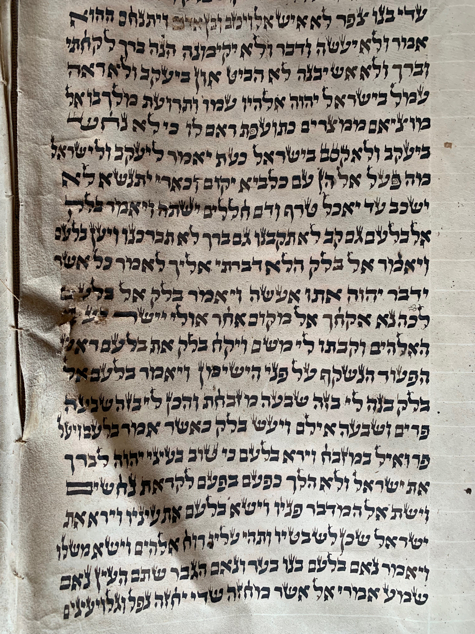 עדי בנו צפר לא איש אל ויכזב ובן אדם ויתנחם ההוא
אמר ולא יעשה ודבר ולא יקימנה הנה ברך לקחתי
וברך ולא אשיבנה לא הביט און ביעקב ולא ראה
עמל בישראל יהוה אלהיו עמו ותרועת מלך בו אל
מוציאם ממצרים כתועפת ראם לו כי לא נחש
ביעקב ולא קסם בישראל כעת יאמר ליעקב ולישראל
מה פעל אל הן עם כלביא יקום וכארי יתנשא לא
ישכב עד יאכל טרף ודם חללים ישתה ויאמר בלק
אל בלעם גם קב לא תקבנו גם ברך לא תברכנו ויען בלעם
ויאמר אל בלק הלא דברתי אליך לאמר כל אשר
ידבר יהוה אתו אעשה ויאמר בלק אל בלעם
לכה נא אקחך אל מקום אחר אולי יישר
האלהים וקבתו לי משם ויקח בלק את בלעם ראש
הפעור הנשקף על פני הישימן ויאמר בלעם אל
בלק בנה לי בזה שבעה מזבחת והכן לי בזה שבעה
פרים ושבעה אילם ויעש בלק כאשר אמר בלעם ויעל
פר ואיל במזבח וירא בלעם כי טוב בעיני יהוה לברך
את ישראל ולא הלך כפעם בפעם לקראת נחשים
וישת אל המדבר פניו וישא בלעם את עיניו וירא את
ישראל שכן לשבטיו ותהי עליו רוח אלהים וישא משלו
ויאמר נאם בלעם בנו בער ונאם הגבר שתם העין נאם
שמע אמרי אל אשר מחזה שדי יחזה נפל וגלוי עינים